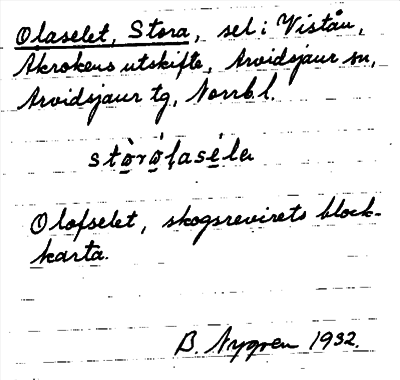 Olaselet, Stora, sel i Viståu,
Akrokens utskifte, Arvidsjaur sn,
Arvidsjaur tg, Norrb. l.
stòrólaséla
Olofselet, skogsrevirets block-
karta.
B. Nygren 1932.